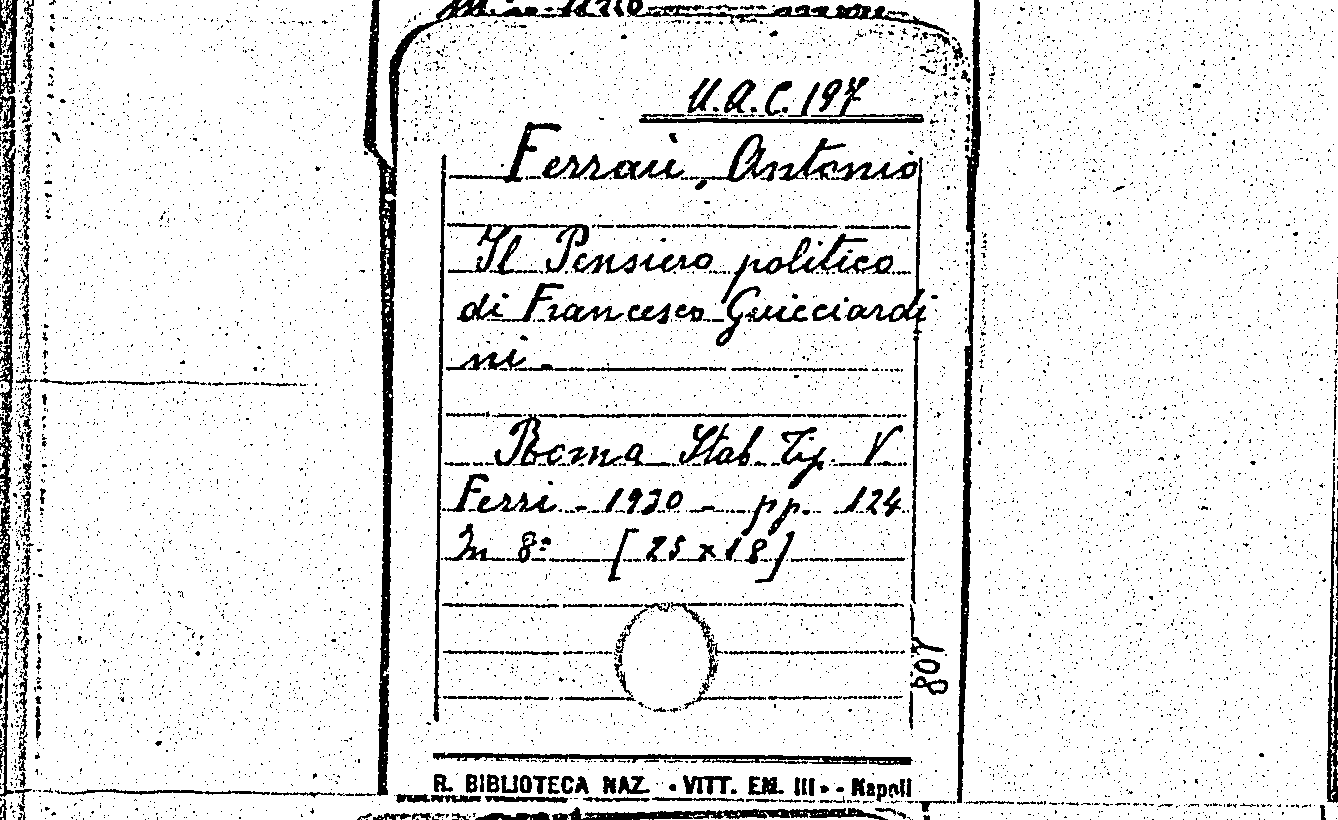 U.A.C. 197
Ferrari, Antonio
Il Pensiero politico
di Francesco Guicciardi
ni.
Roma Stab. Tip. V.
Ferri - 1920 - pp. 124
In 8° [25 x 18]
807
R. BIBLIOTECA NAZ. • VITT. EM. III • - Napoli